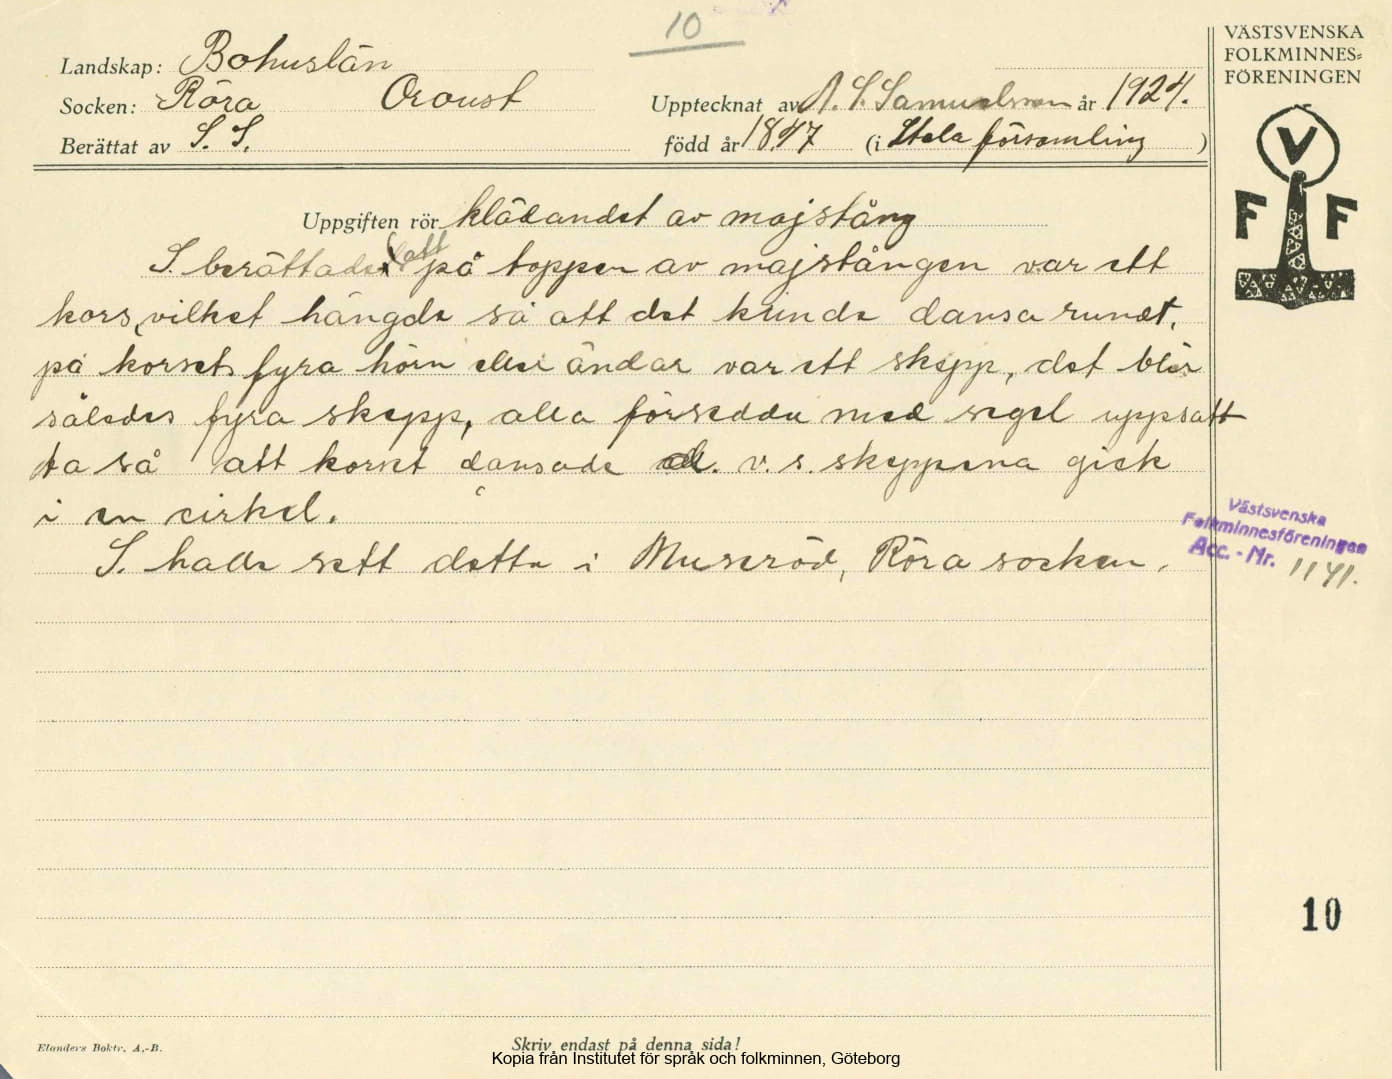 10
VÄSTSVENSKA
FOLKMINNES=
FÖRENINGEN
Landskap: Bohuslän
Socken: Röra Oroust
Upptecknat av A. S. Samuelsson år 1924.
Berättat av S. S.
född år 1847 (i Stala församling)
V
F F
Uppgiften rör klädandet av majstång
S. berättade att på toppen av majstången var ett
kors, vilket hängde så att det kunde dansa rundt,
på korsets fyra hörn eller ändar var ett skepp, det blir
således fyra skepp, alla försedda med segel uppsatt
ta så att korset dansade d. v. s. skeppena gick
i en cirkel.
S. hade sett detta i Museröd, Röra socken.
Västsvenska
Folkminnesföreningen
Acc. - Nr. 1141.
10
Elanders Boktr. A.-B.
Skriv endast på denna sida!
Kopia från Institutet för språk och folkminnen, Göteborg